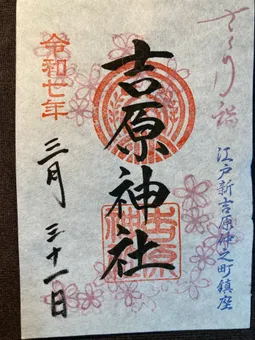 さくり詣
江戸新吉原仲之町鎮座
吉原神社
吉原神社
令和七年
三月三十一日